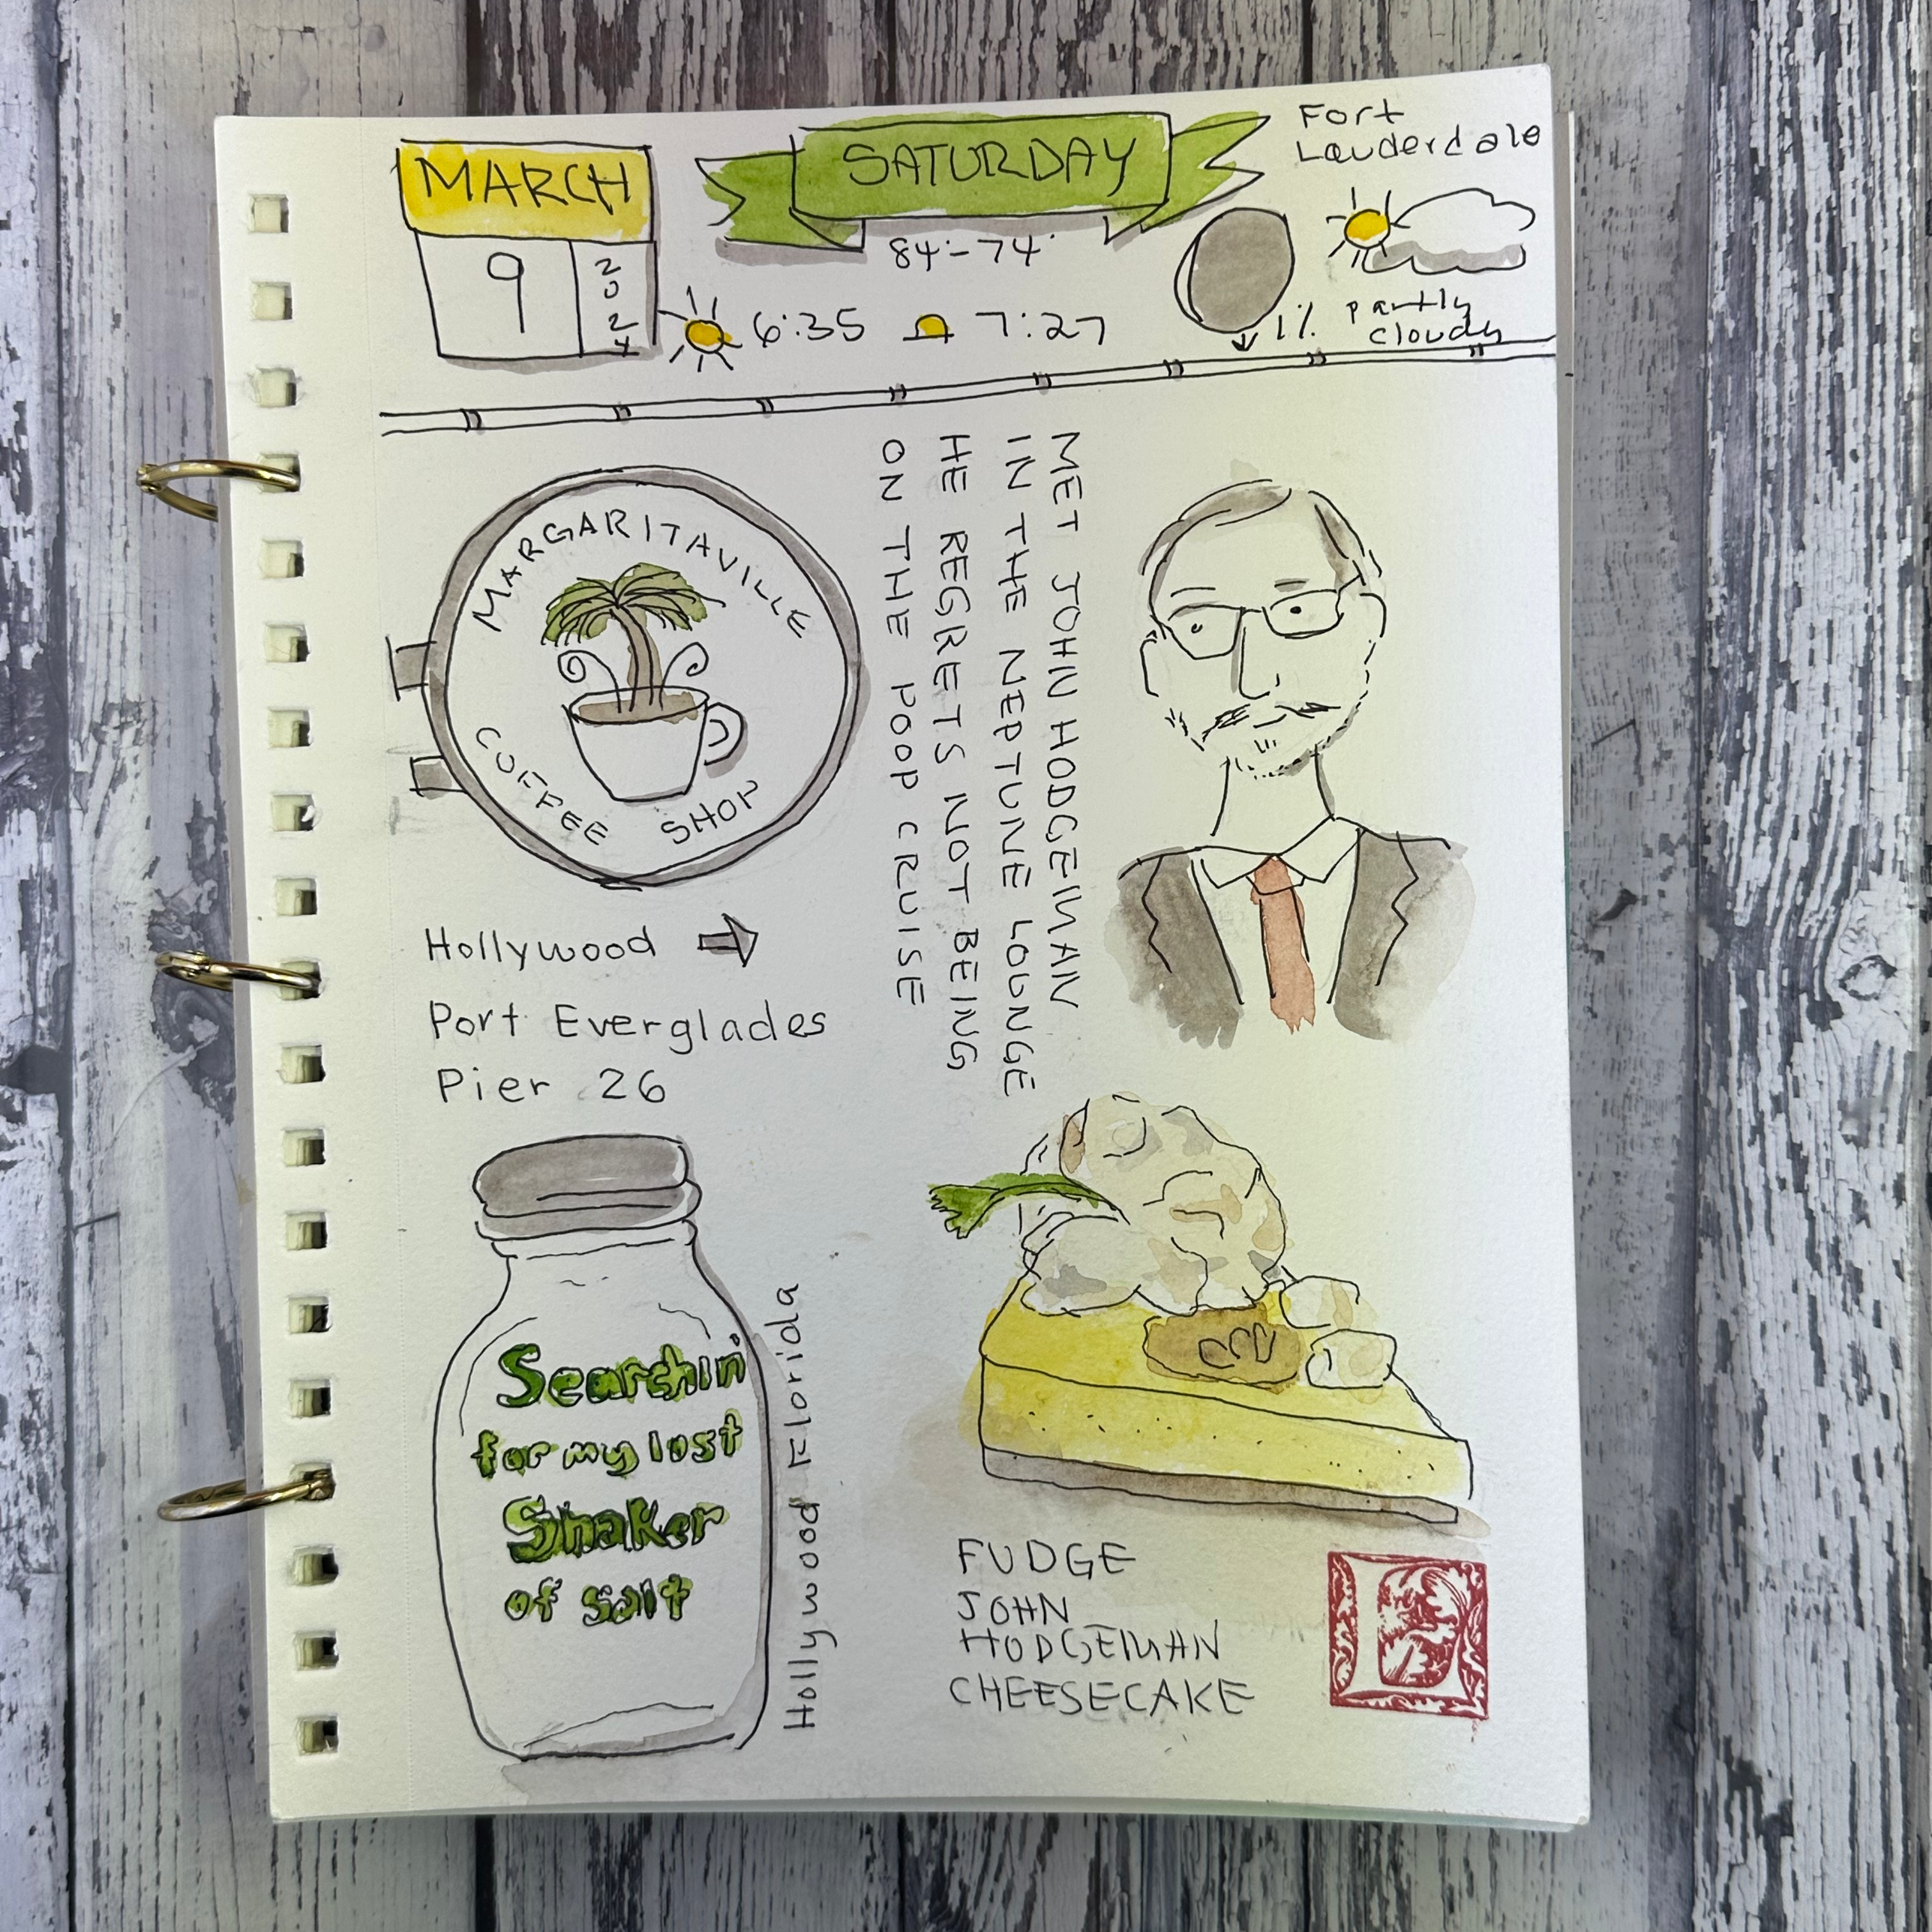 MARCH
9
2024
SATURDAY
84°-74°
6:35
7:27
1%
Fort
Lauderdale
partly
cloudy
MARGARITAVILLE
COFFEE SHOP
MET JOHN HODGEMAN
IN THE NEPTUNE LOUNGE
HE REGRETS NOT BEING
ON THE POOP CRUISE
Hollywood →
Port Everglades
Pier 26
Searchin'
for my lost
Shaker
of salt
Hollywood Florida
FUDGE
JOHN
HODGEMAN
CHEESECAKE